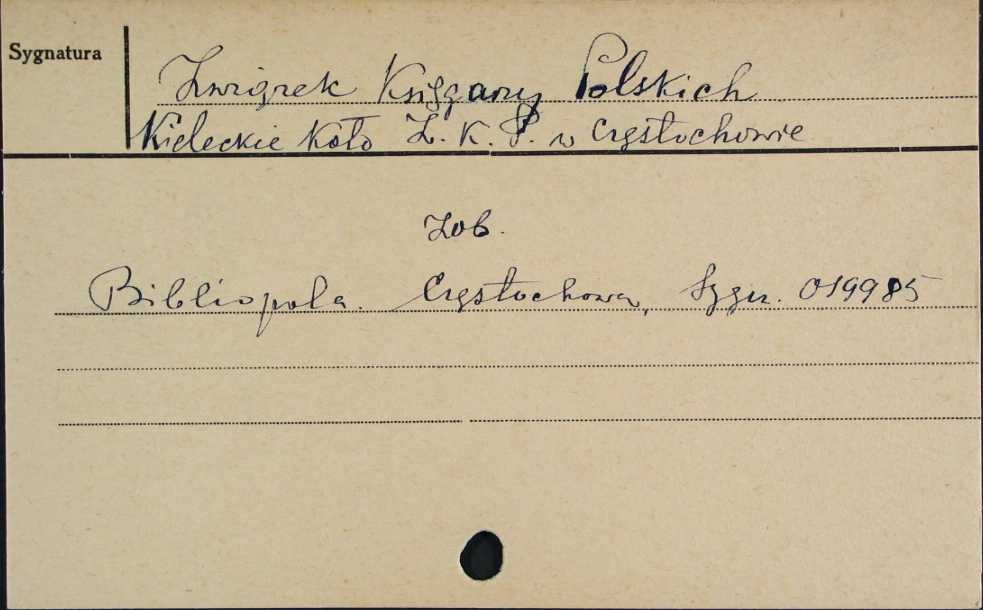 Sygnatura
Związek Księgarzy Polskich
Kieleckie Koło Z. K. P. w Częstochowie
Zob.
Bibliopola. Częstochowa, Sygn. 019985